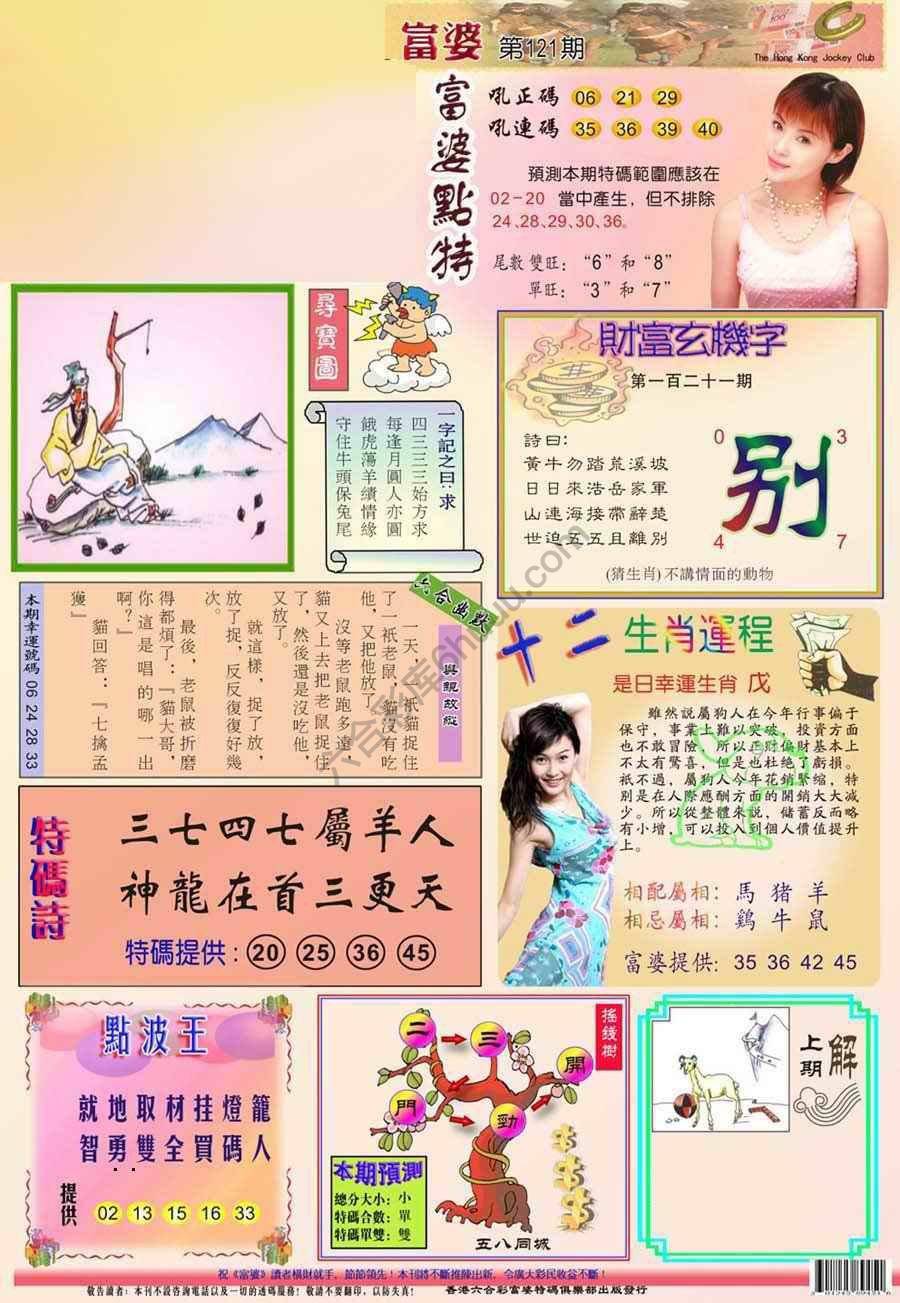 富婆 第121期
The Hong Kong Jockey Club
富婆點特
吼正碼 06 21 29
吼連碼 35 36 39 40
預測本期特碼範圍應該在
02-20 當中產生，但不排除
24、28、29、30、36。
尾數雙旺：“6”和“8”
單旺：“3”和“7”
尋寶圖
一字記之曰：求
四三三三始方求
每逢月圓人亦圓
餓虎蕩羊績情緣
守住牛頭保兔尾
財富玄機字
第一百二十一期
詩曰：
黃牛勿踏荒溪坡
日日來浩岳家軍
山連海接帶辭楚
世迫五五且離別
0 3
别
4 7
(猜生肖)不講情面的動物
六合幽默
與親故縱
一天，一祇貓捉住
了一祇老鼠，貓沒有吃
他，又把他放了。
沒等老鼠跑多遠，
貓又上去把老鼠捉住
了，然後還是沒吃他，
又放了。
就這樣，捉了放，
放了捉，反反復復好幾
次。
最後，老鼠被折磨
得都煩了：“貓大哥，
你這是唱的哪一出
啊？”
貓回答：“七擒孟
獲”
本期幸運號碼 06 24 28 33
十二生肖運程
是日幸運生肖 戊
雖然說屬狗人在今年行事偏于
保守，事業上難以突破，投資方面
也不敢冒險，所以正財偏財基本上
不太有驚喜，但是也杜絕了虧損。
祇不過，屬狗人今年花銷緊縮，特
別是在人際應酬方面的開銷大大減
少。所以從整體來說，儲蓄反而略
有小增，可以投入到個人價值提升
上。
相配屬相：馬 猪 羊
相忌屬相：鷄 牛 鼠
富婆提供：35 36 42 45
特碼詩
三七四七屬羊人
神龍在首三更天
特碼提供：20 25 36 45
點波王
就地取材挂燈籠
智勇雙全買碼人
提供 02 13 15 16 33
搖錢樹
二 三 開
門 勁
本期預測
總分大小：小
特碼合數：單
特碼單雙：雙
五八同城
上期解
祝《富婆》讀者橫財就手，節節領先！本刊將不斷推陳出新，令廣大彩民收益不斷！
敬告讀者：本刊不設咨詢電話以及一切的透碼服務！敬請不要翻印，以防失真！
香港六合彩富婆特碼俱樂部出版發行